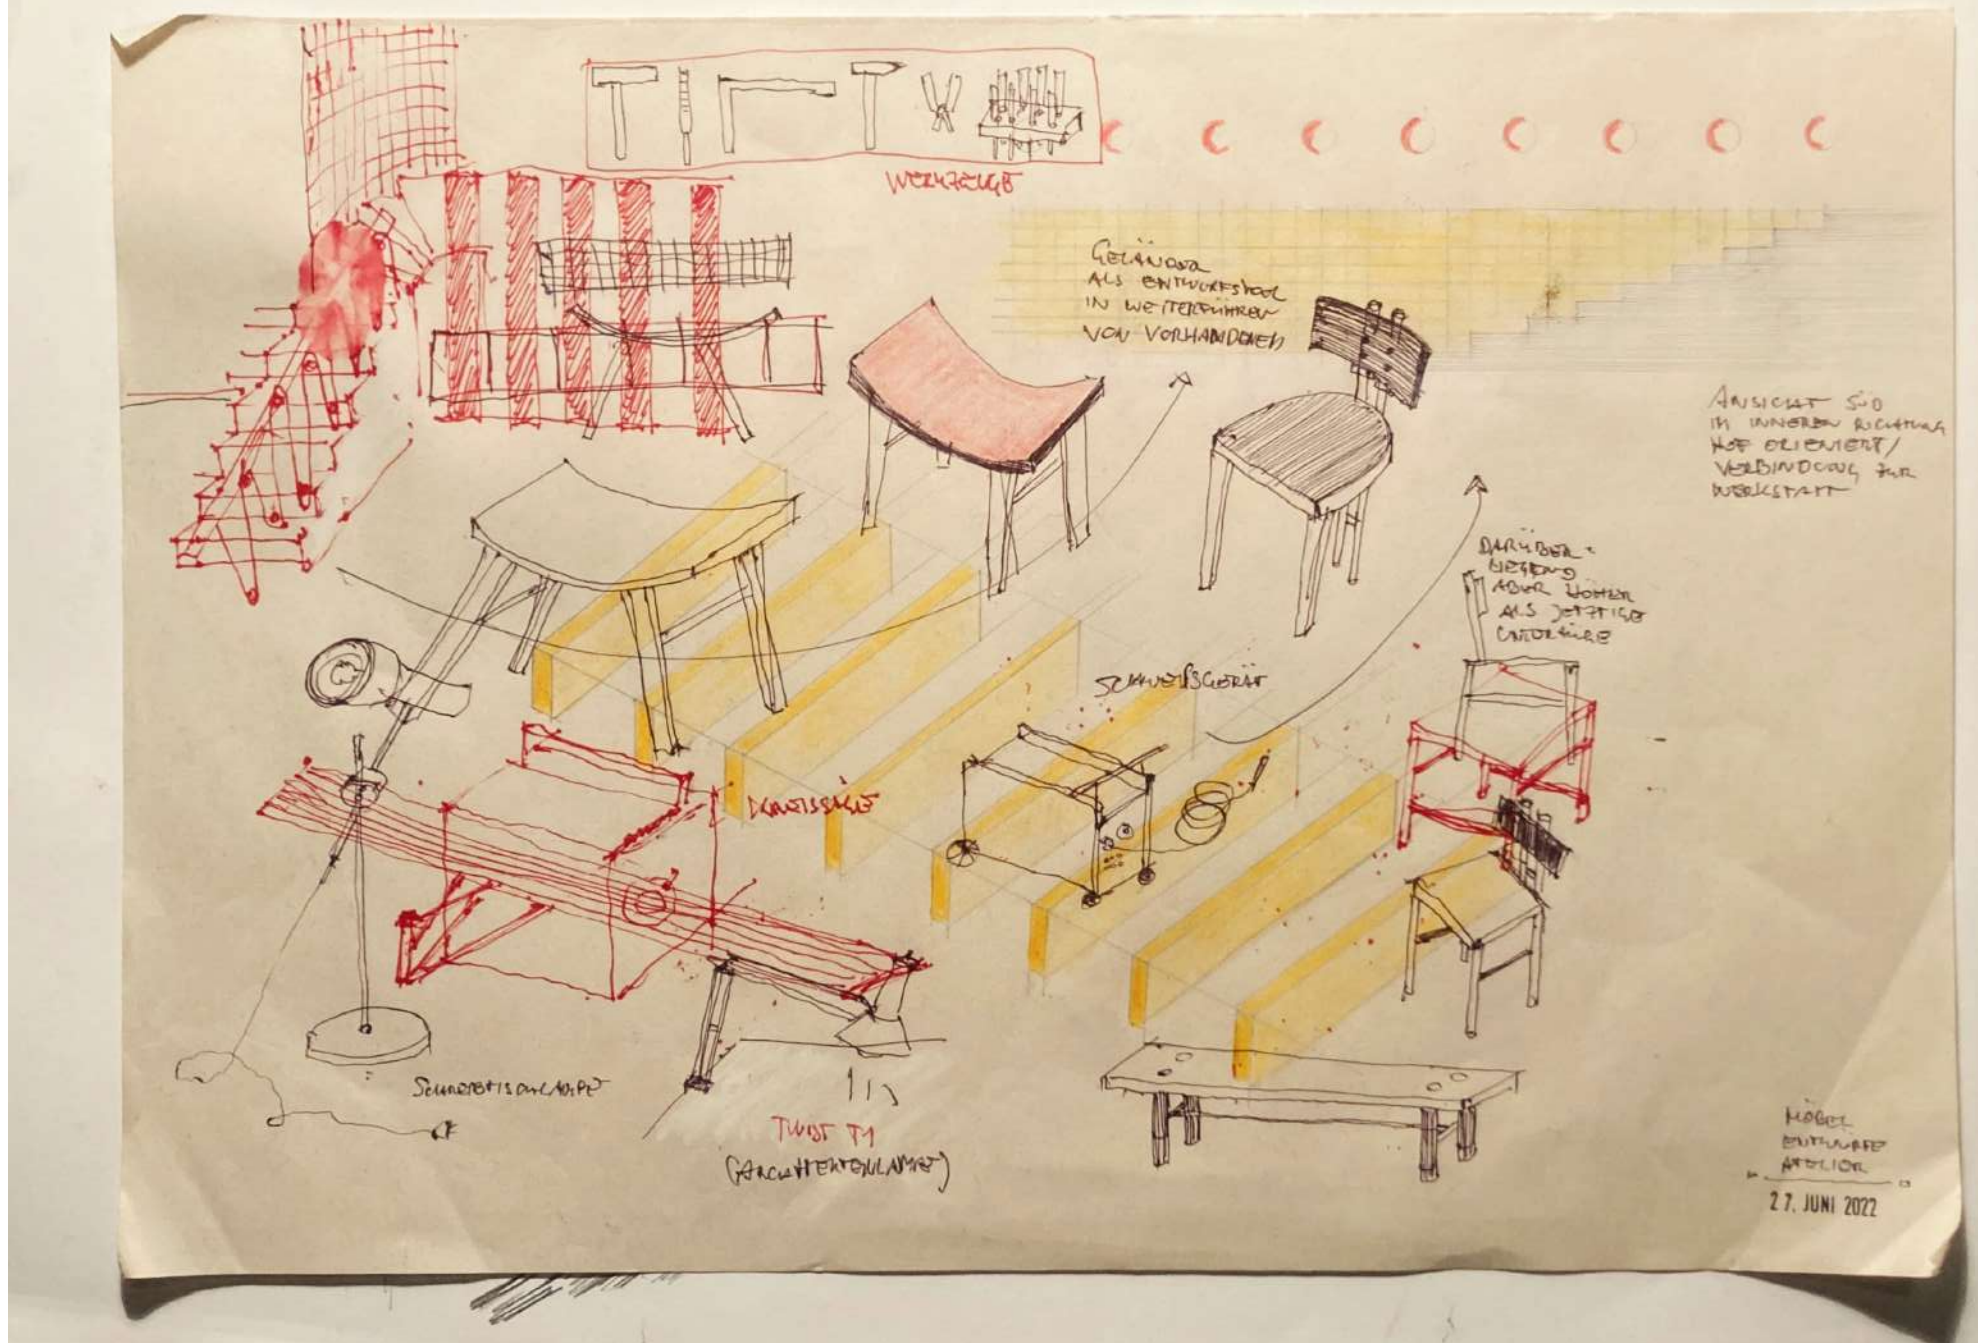 WERKZEUGE
GELÄNDER
ALS ENTWURFSTOOL
IN WEITERFÜHREN
VON VORHANDENEN
ANSICHT SÜD
IM INNEREN RICHTUNG
HOF ORIENTIERT/
VERBINDUNG ZUR
WERKSTATT
DARÜBER-
LIEGEND
ABER HÖHER
ALS JETZTIGE
UNTERZÜGE
SCHWEIßGERÄT
KREISSÄGE
SCHREIBTISCHLAMPE
TWIST T1
(ARCHITEKTENLAMPE)
MÖBEL
ENTWÜRFE
ATELIER
27. JUNI 2022